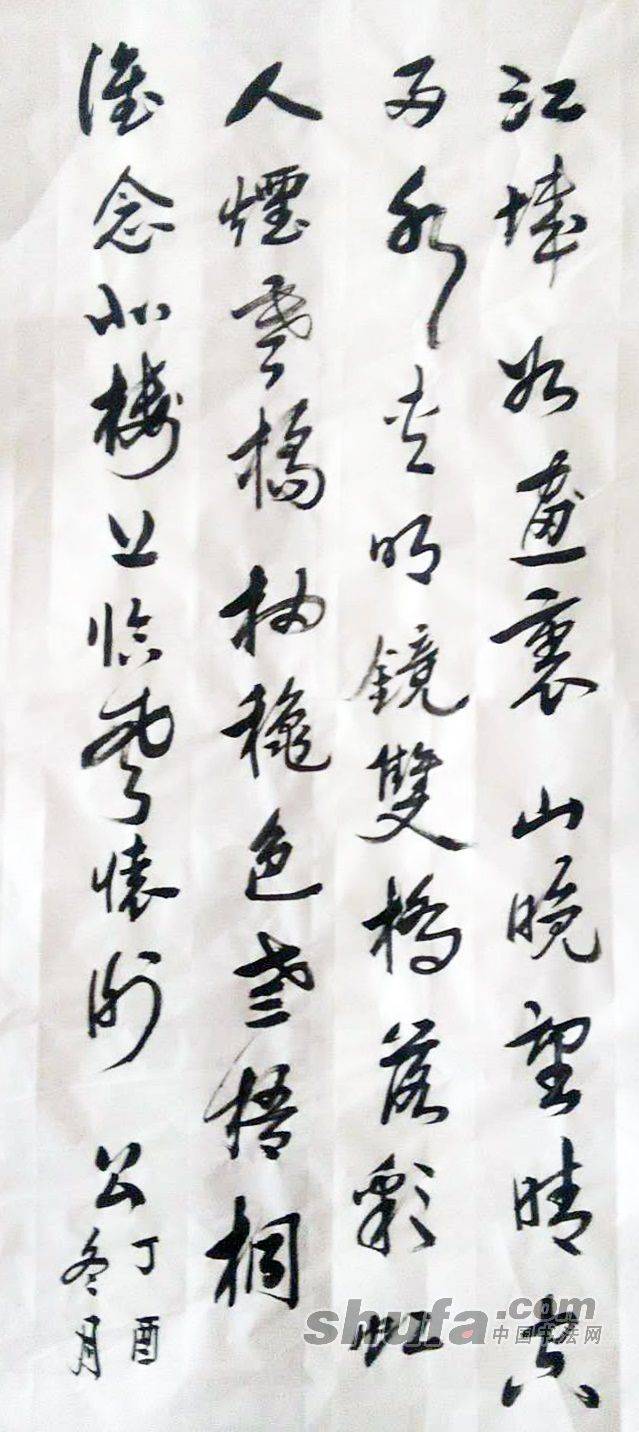 江城如畫裏山晚望晴空
兩水夾明鏡雙橋落彩虹
人煙寒橘柚穐色老梧桐
誰念北樓上臨風懷謝公
丁酉
冬月
shufa.com
中国书法网